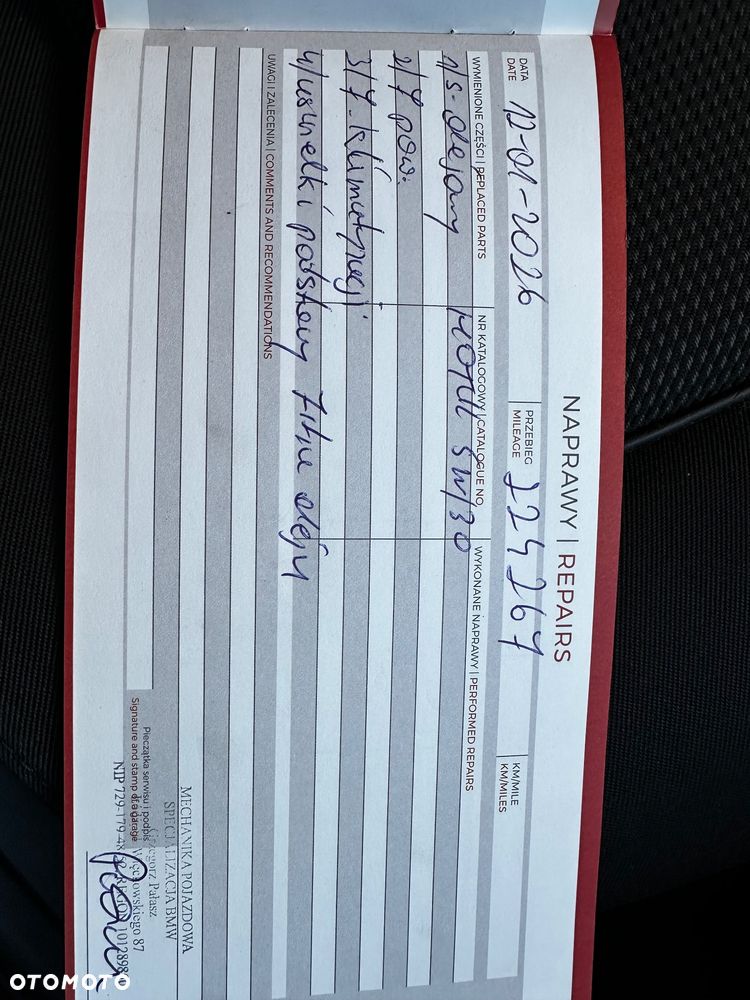 NAPRAWY | REPAIRS
DATA
DATE
12-01-2026
PRZEBIEG
MILEAGE
224267
KM/MILE
KM/MILES
WYMIENIONE CZĘŚCI | REPLACED PARTS
NR KATALOGOWY | CATALOGUE NO.
WYKONANE NAPRAWY | PERFORMED REPAIRS
1/s-olejowy MOTUL 5W/30
2/f pow.
3/f-klimatyzacji
4/uszczelki podstawy filtra oleju
UWAGI I ZALECENIA | COMMENTS AND RECOMMENDATIONS
MECHANIKA POJAZDOWA
SPECJALIZACJA BMW
Grzegorz Pałasz
Pieczątka serwisu i podpis
Signature and stamp of a garage
Więckowskiego 87
NIP 729-179-48 REGON 1012898
OTOMOTO